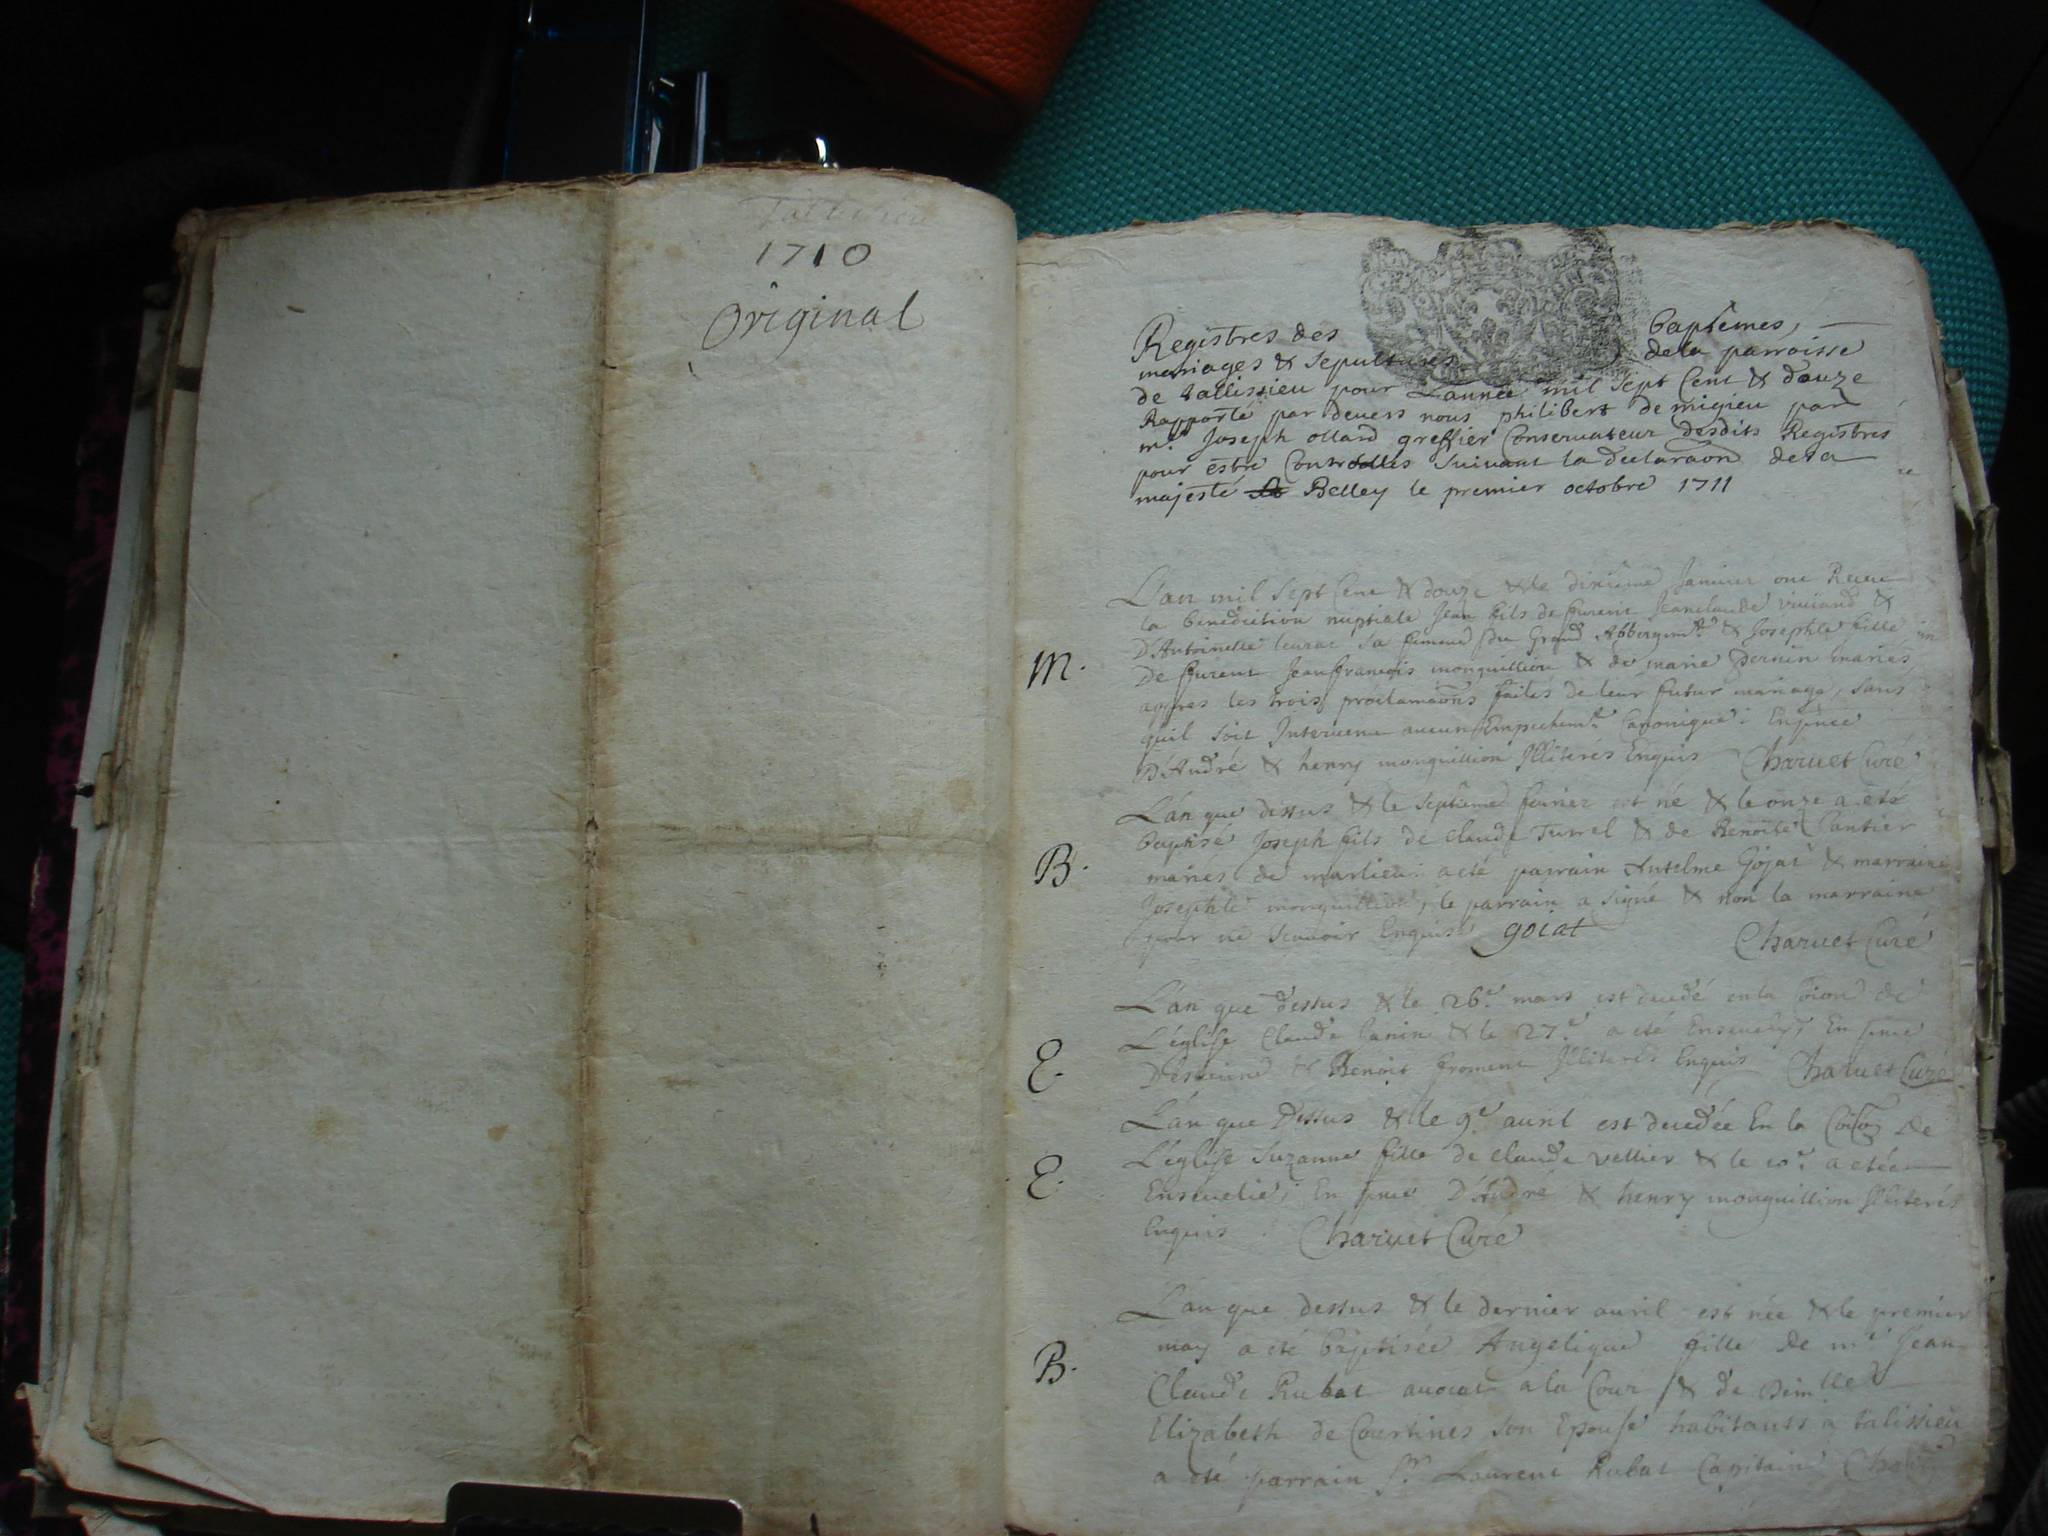 Tallisieu
1710
Original
Registres des baptêmes,
mariages & sepultures de la parroisse
de tallissieu pour Lannée mil sept Cent & douze
Rapporté par devers nous philibert de migieu par
me. Joseph ollard greffier Conservateur desdits Registres
pour estre Controlles suivant la declaraon de sa
majesté Belley le premier octobre 1711
L'an mil sept Cent & douze & le dixième Janvier ont Receu
la benediction nuptiale Jean fils de furent Jeanclaude &
D'Antoinette sa femme du Grand Abbergemt. & Josephte fille
M. De furent Jeanfrancois monguillion & de marie pernin mariés
appres les trois proclamaons faites de leur futur mariage, sans
quil soit Intervenu aucun Empechemt. Canonique: Enpnce
D'André & henry monguillion Illiteres Enquis Charvet Curé
L'an que dessus & le septième fevrier est né & le onze a eté
baptisé Joseph fils de Claude Turrel & de Benoite Cantier
B. mariés de marlieu a eté parrain Antelme Gojat & marraine
Josephte monguillion, le parrain a signé & non la marraine
pour ne scavoir Enquise goiat Charvet Curé
L'an que dessus & le 26e. mars est decedé en la de
E. L'eglise Claude Janin & le 27e. a eté Ensevely, En pnce
D'Estienne & Benoit froment Illiterés Enquis Charvet Curé
L'an que Dessus & le 9e. avril est decedée En la De
E. L'eglise Suzanne fille de Claude vellier & le 10e. a etée
Ensevelie; En pnce D'André & henry monguillion Illiterés
Enquis Charvet Curé
L'an que dessus & le dernier avril est née & le premier
may a eté baptisée Angelique fille de me. Jean
B. Claude Rubat avocat a la Cour & de Demlle
Elizabeth de Courtines son Epouse habitants a talissieu
a eté parrain Sr. Laurent Rubat Capitaine